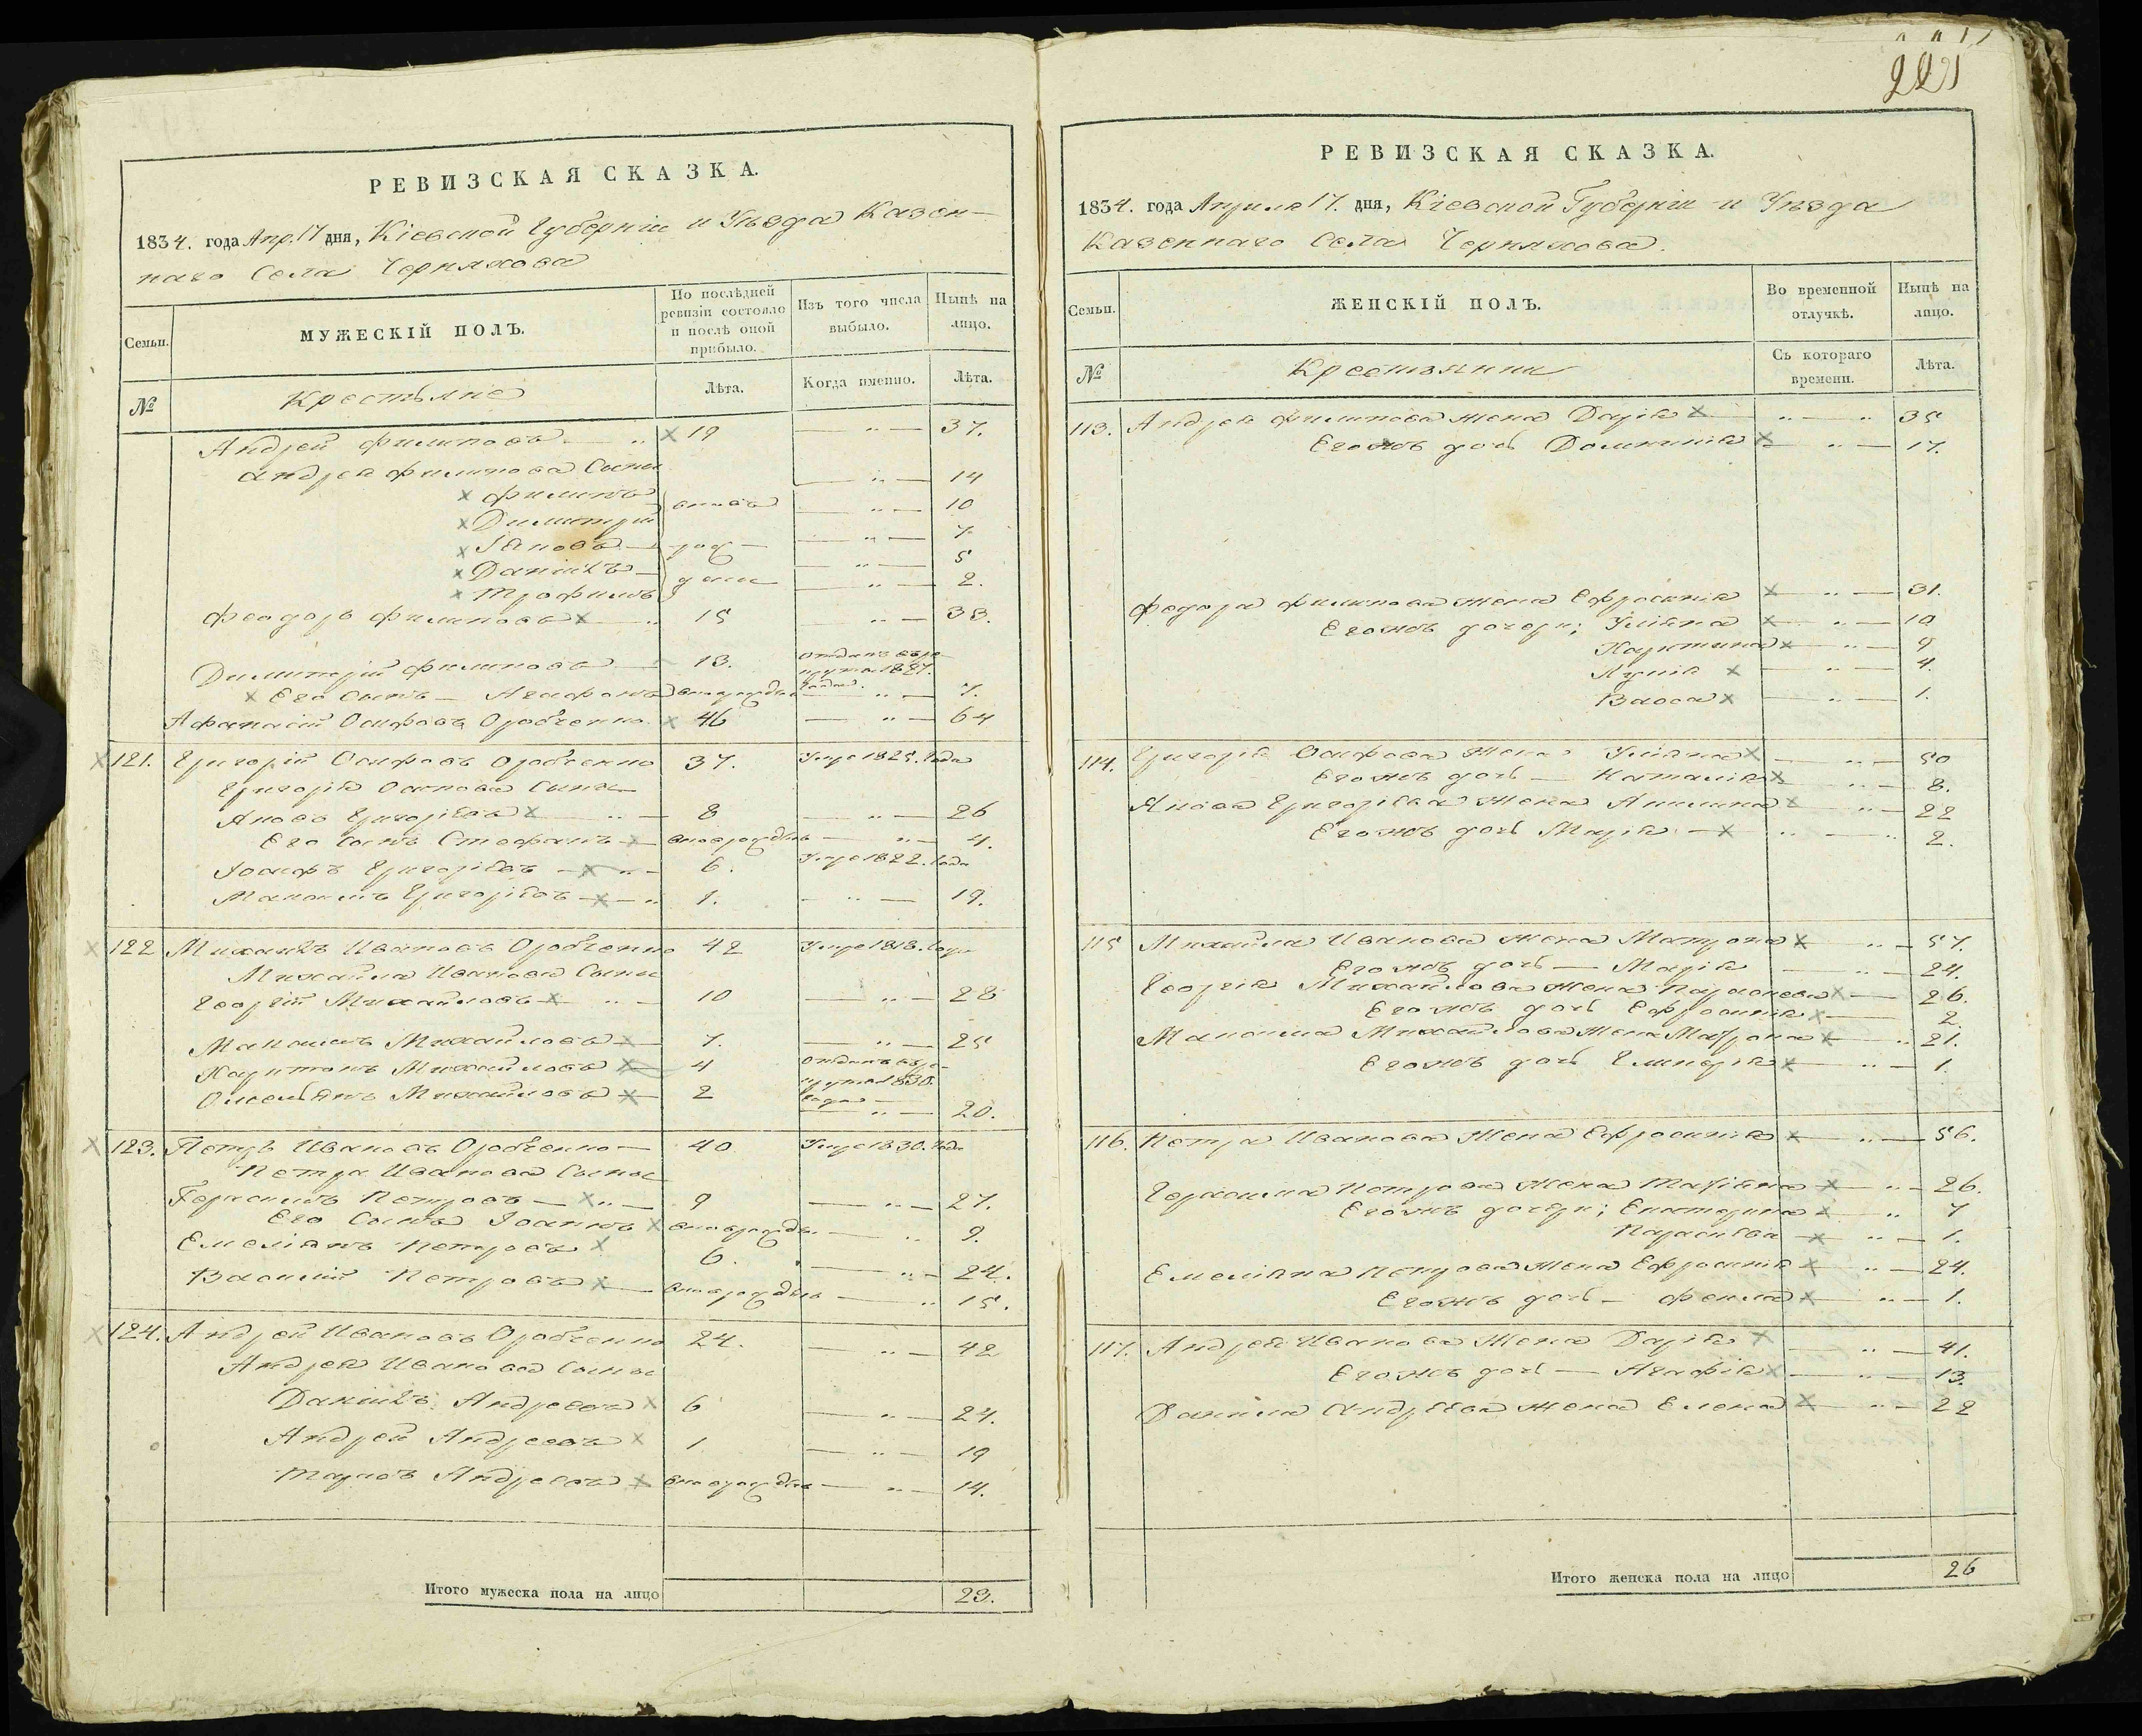 221
РЕВИЗСКАЯ СКАЗКА.
1834. года Апр. 17 дня, Кіевской Губерніи и Уѣзда Казен-
наго Села Черняхова
Семьи.
МУЖЕСКІЙ ПОЛЪ.
По послѣдней ревизіи состояло и послѣ оной прибыло.
Изъ того числа выбыло.
Нынѣ на лицо.
№
Крестьяне
Лѣта.
Когда именно.
Лѣта.
Андрей Филиповъ 19 — „ — 37.
Андрея Филипова Сыны
Филипъ — „ — 14
Димитрій вновь — „ — 10
Іяковъ рож — „ — 7
Даніилъ — „ — 5
Трофимъ дены — „ — 2.
Феодоръ Филиповъ 15 — „ — 33.
Димитрій Филиповъ 13. отданъ въ рекруты 1827. года.
Его Сынъ — Агафонъ вновь рожденъ — „ — 7.
Афанасій Осифовъ 46 — „ — 64
121. Григорій Осифовъ 37. Умре 1825. Года
Григорія Осипова Сыны
Яковъ Григоріевъ 8 — „ — 26
Его Сынъ Стефанъ вноврожденъ — „ — 4.
Іосифъ Григоріевъ 6. Умре 1822. Года
Максимъ Григоріевъ 1. — „ — 19.
122 Михаилъ Ивановъ 42 Умре 1818. Года
Михайла Иванова Сыны
Георгій Михайловъ 10 — „ — 28
Максимъ Михайловъ 7. — „ — 25
Харитонъ Михайловъ 4 отданъ въ рекруты 1830. Года
Омельянъ Михайловъ 2 — „ — 20.
123. Петръ Ивановъ 40 Умре 1830. Года
Петра Иванова Сыны
Герасимъ Петровъ 9 — „ — 27.
Его Сынъ Іоаннъ вноврожденъ — „ 9.
Емеліянъ Петровъ 6. — „ — 24.
Василій Петровъ вноврожденъ — „ 15.
124. Андрей Ивановъ 24. — „ — 42
Андрея Иванова Сыны
Даніилъ Андреевъ 6 — „ — 24.
Андрей Андреевъ 1. — „ — 19
Марко Андреевъ вноврожденъ — „ — 14.
Итого мужеска пола на лицо 23.
РЕВИЗСКАЯ СКАЗКА.
1834. года Апрѣля 17. дня, Кіевской Губерніи и Уѣзда
Казеннаго Села Черняхова.
Семьи.
ЖЕНСКІЙ ПОЛЪ.
Во временной отлучкѣ.
Нынѣ на лицо.
№
Съ котораго времени.
Лѣта.
113. Андрея Филипова жена Дарія „ — „ 35
Егожъ дочь Домникія — „ — 17.
Федора Филипова жена Ефросинія — „ — 31.
Егожъ дочери; Уліяна — „ — 10
Харитина — „ — 9
— „ — 4.
Васса — „ — 1.
114. Григорія Осифова Жена Уліяна — „ — 50
Егожъ дочь — Наталія — „ — 8.
Якова Григоріева Жена Акилина — „ — 22
Егожъ дочь Марія — „ — „ 2.
115 Михайла Иванова жена Матрона — „ — 57.
Егожъ дочь — Марія — „ — 24.
Георгія Михайлова жена Параскева — 26.
Егожъ дочь Ефросинія — 2.
Максима Михайлова Жена Матрона — „ 21.
Егожъ дочь Гликерія — „ — 1.
116. Петра Иванова Жена Ефросинія — „ — 56.
Герасима Петрова Жена Татіяна — „ — 26.
Егожъ дочери; Екатерина „ 7
Параскева — „ — 1.
Емеліяна Петрова Жена Ефросинія — „ — 24.
Егожъ дочь — Фекла — „ — 1.
117. Андрея Иванова Жена Дарія — „ — 41.
Егожъ дочь — Агафія — „ — 13.
Данила Андрѣева жена Елена — „ — 22
Итого женска пола на лицо 26